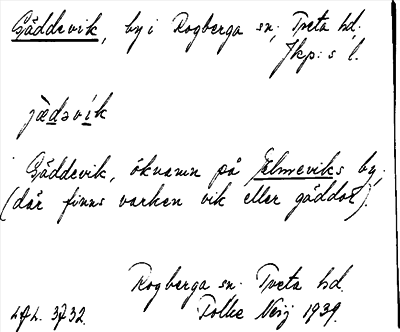 Gäddevik, by i Rogberga sn; Tveta hd.
Jkp:s l.
jädəvík
Gäddevik, öknamn på Elmeviks by,
(där finns varken vik eller gäddor).
Rogberga sn. Tveta hd.
Folke Neij 1939.